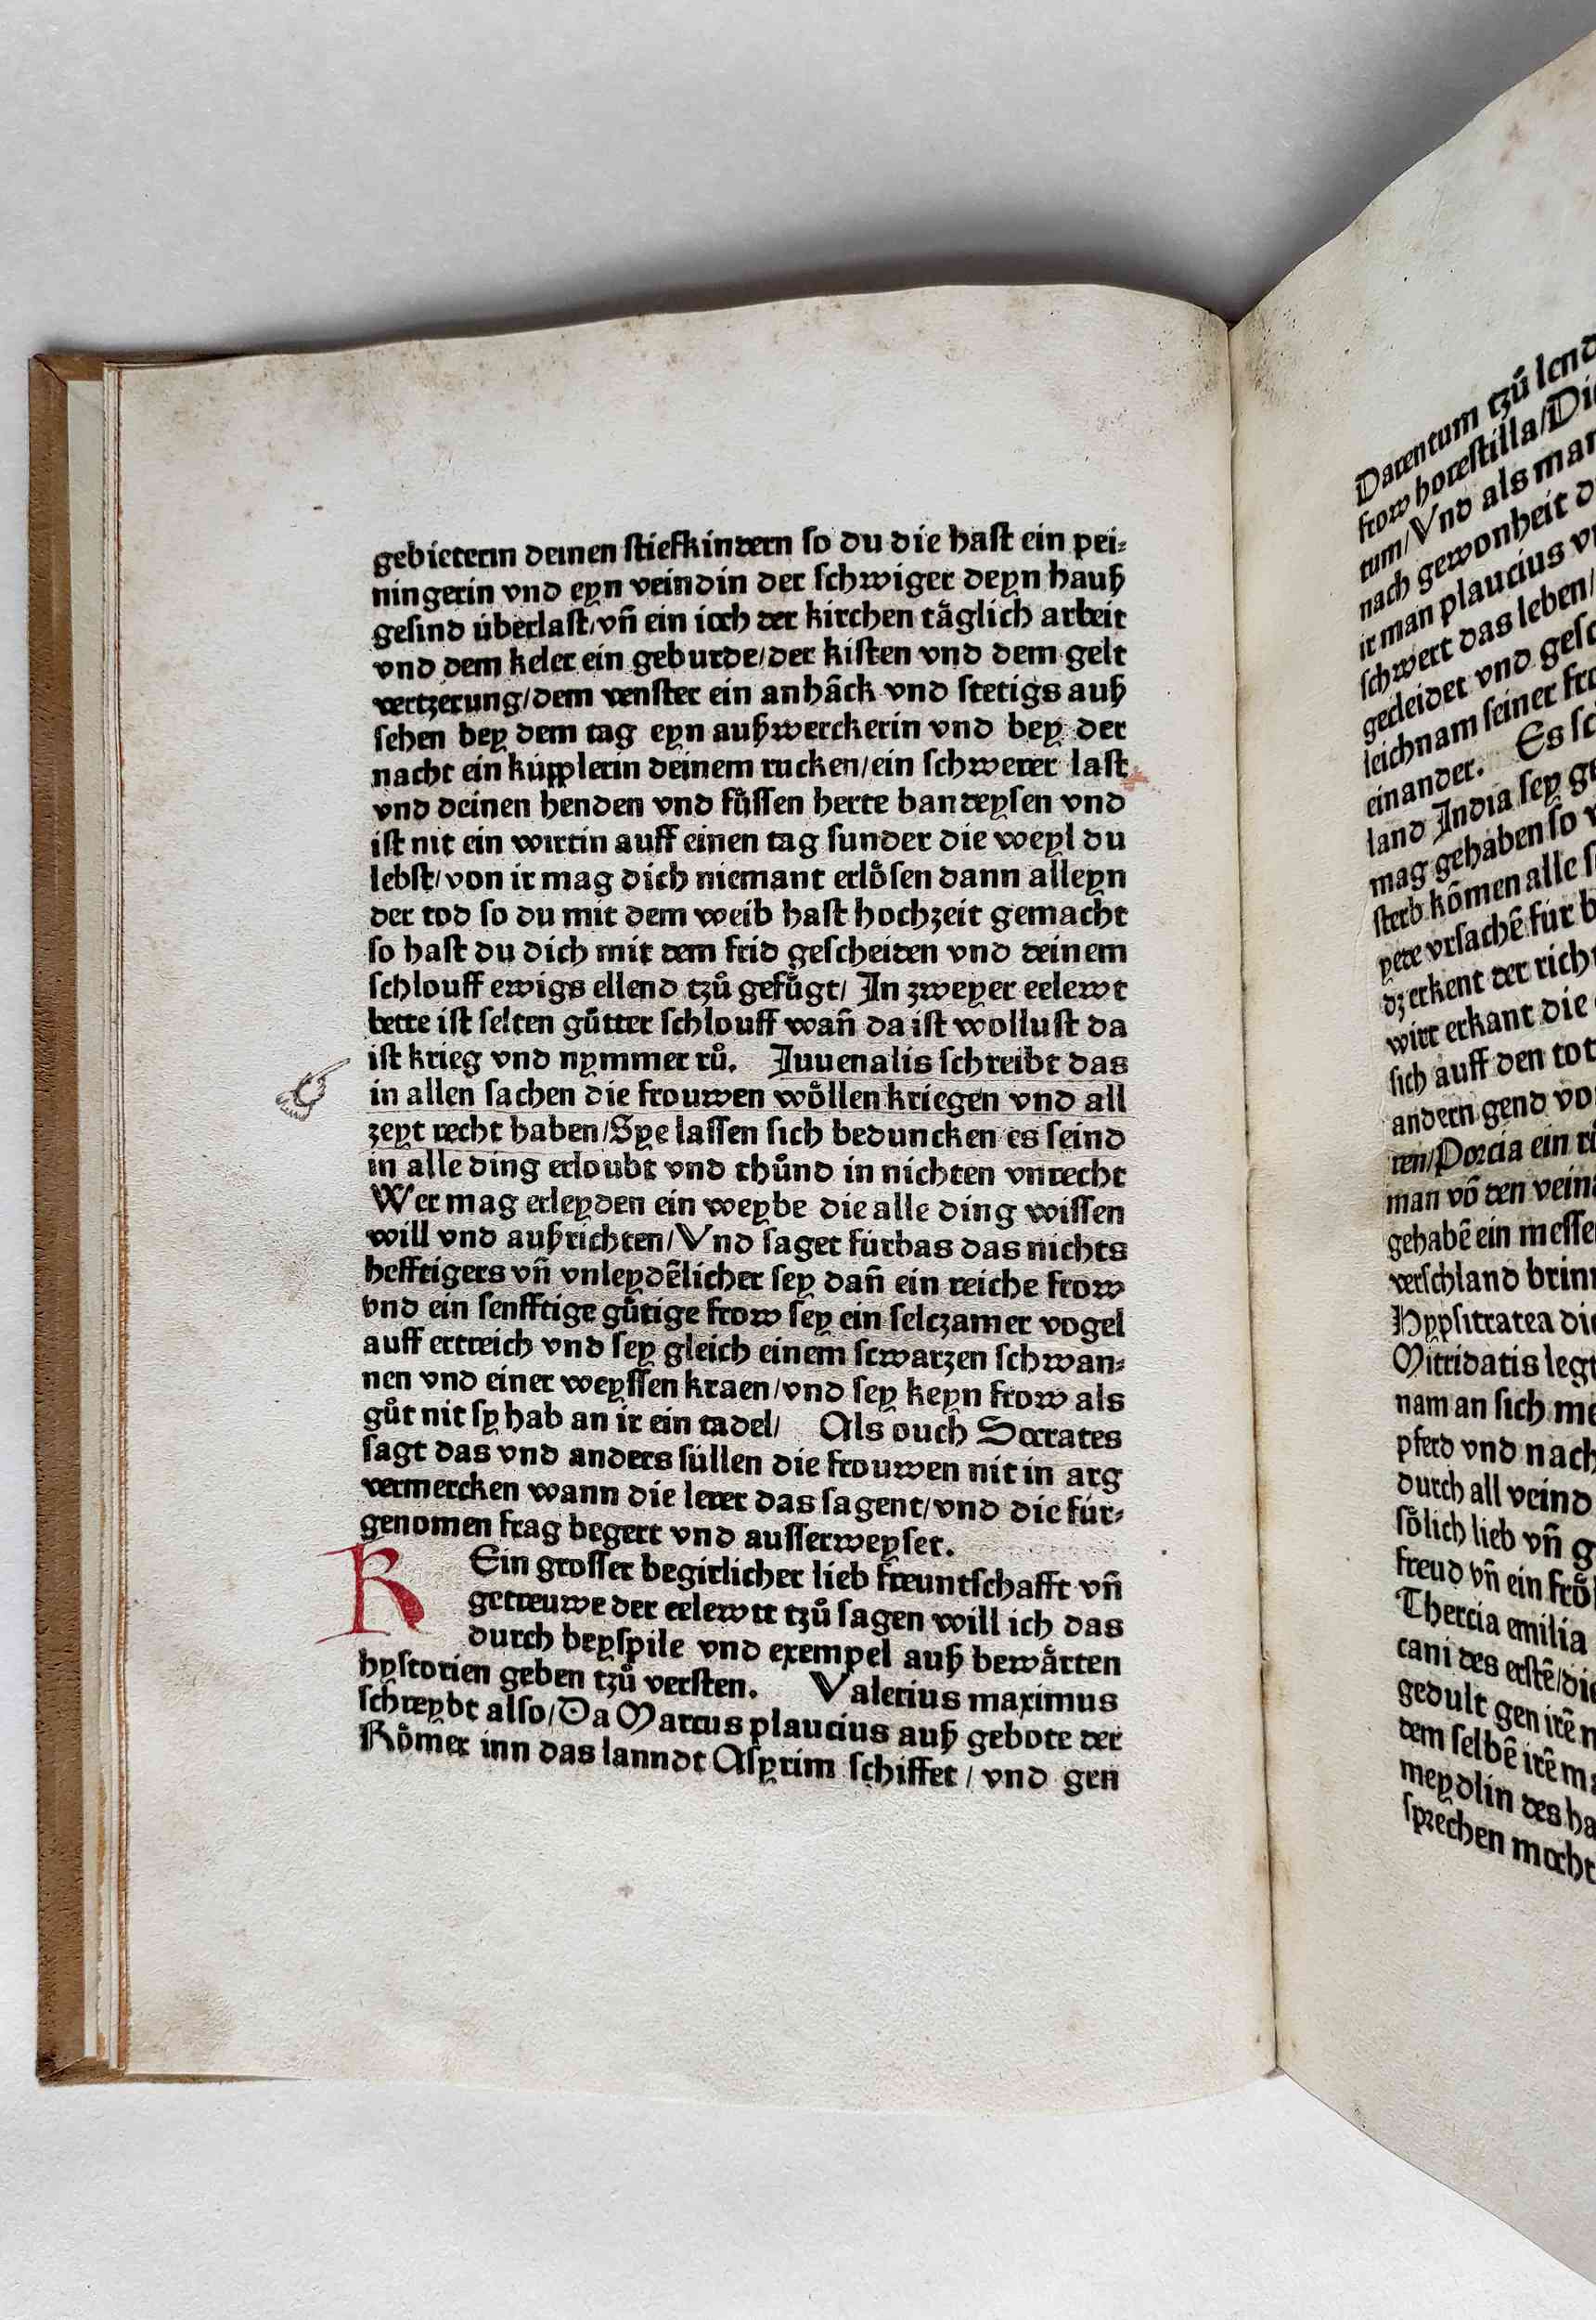 gebieterin deinen stiefkindern so du die hast ein pei⸗
ningerin vnd eyn veindin der schwiger deyn hauß
gesind überlast/vñ ein ioch der kirchen täglich arbeit
vnd dem keler ein geburde/der kisten vnd dem gelt
vertzerung/dem venster ein anhâck vnd stetigs auß
sehen bey dem tag eyn außwerckerin vnd bey der
nacht ein kupplerin deinem rucken/ein schwerer last
vnd deinen henden vnd fůssen herte bandeysen vnd
ist nit ein wirtin auff einen tag sunder die weyl du
lebst/von ir mag dich niemant erlösen dann alleyn
der tod so du mit dem weib hast hochzeit gemacht
so hast du dich mit dem frid gescheiden vnd deinem
schlouff ewigs ellend tzů gefůgt/ In zweyer eelewt
bette ist selten gůtter schlouff wañ da ist wollust da
ist krieg vnd nymmer rů. Iuuenalis schreibt das
in allen sachen die frouwen wöllen kriegen vnd all
zeyt recht haben/Sye lassen sich beduncken es seind
in alle ding erloubt vnd thůnd in nichten vnrecht
Wer mag erleyden ein weybe die alle ding wissen
will vnd außrichten/Vnd saget fürbas das nichts
hefftigers vñ vnleydẽlicher sey dañ ein reiche frow
vnd ein senfftige gůtige frow sey ein selczamer vogel
auff ertreich vnd sey gleich einem scwarzen schwan⸗
nen vnd einer weyssen kraen/vnd sey keyn frow als
gůt nit sy hab an ir ein tadel/ Als ouch Socrates
sagt das vnd anders süllen die frouwen nit in arg
vermercken wann die lerer das sagent/vnd die für⸗
genomen frag begert vnd ausserweyset.
R Ein grosser begirlicher lieb freuntschafft vñ
getreuwe der eelewtt tzů sagen will ich das
durch beyspile vnd exempel auß bewärten
hystorien geben tzů versten. Valerius maximus
schreybt also/Da Marcus plaucius auß gebote der
Römer inn das lanndt Asyrim schiffet/vnd gen
Darentum tzů lend
frow horestilla/Di
tum/Vnd als mar
nach gewonheit d
ir man plaucius
schwert das leben/
gecleidet vnd
leichnam seiner
einander. Es
land India sey
mag gehaben so
sterb kömen alle
yede vrsachẽ für
dz erkent der
wirt erkant die
sich auff den
andern gend
ten/Porcia ein
man võ den
gehabẽ ein
verschland
Hypsitratea
Mitridatis
nam an sich
pferd vnd nach
durch all veind
sölich lieb vñ
freud vñ ein
Thercia emilia
cani des erstẽ/
gedult gen irẽ
dem selbẽ irẽ
meydlin des
sprechen